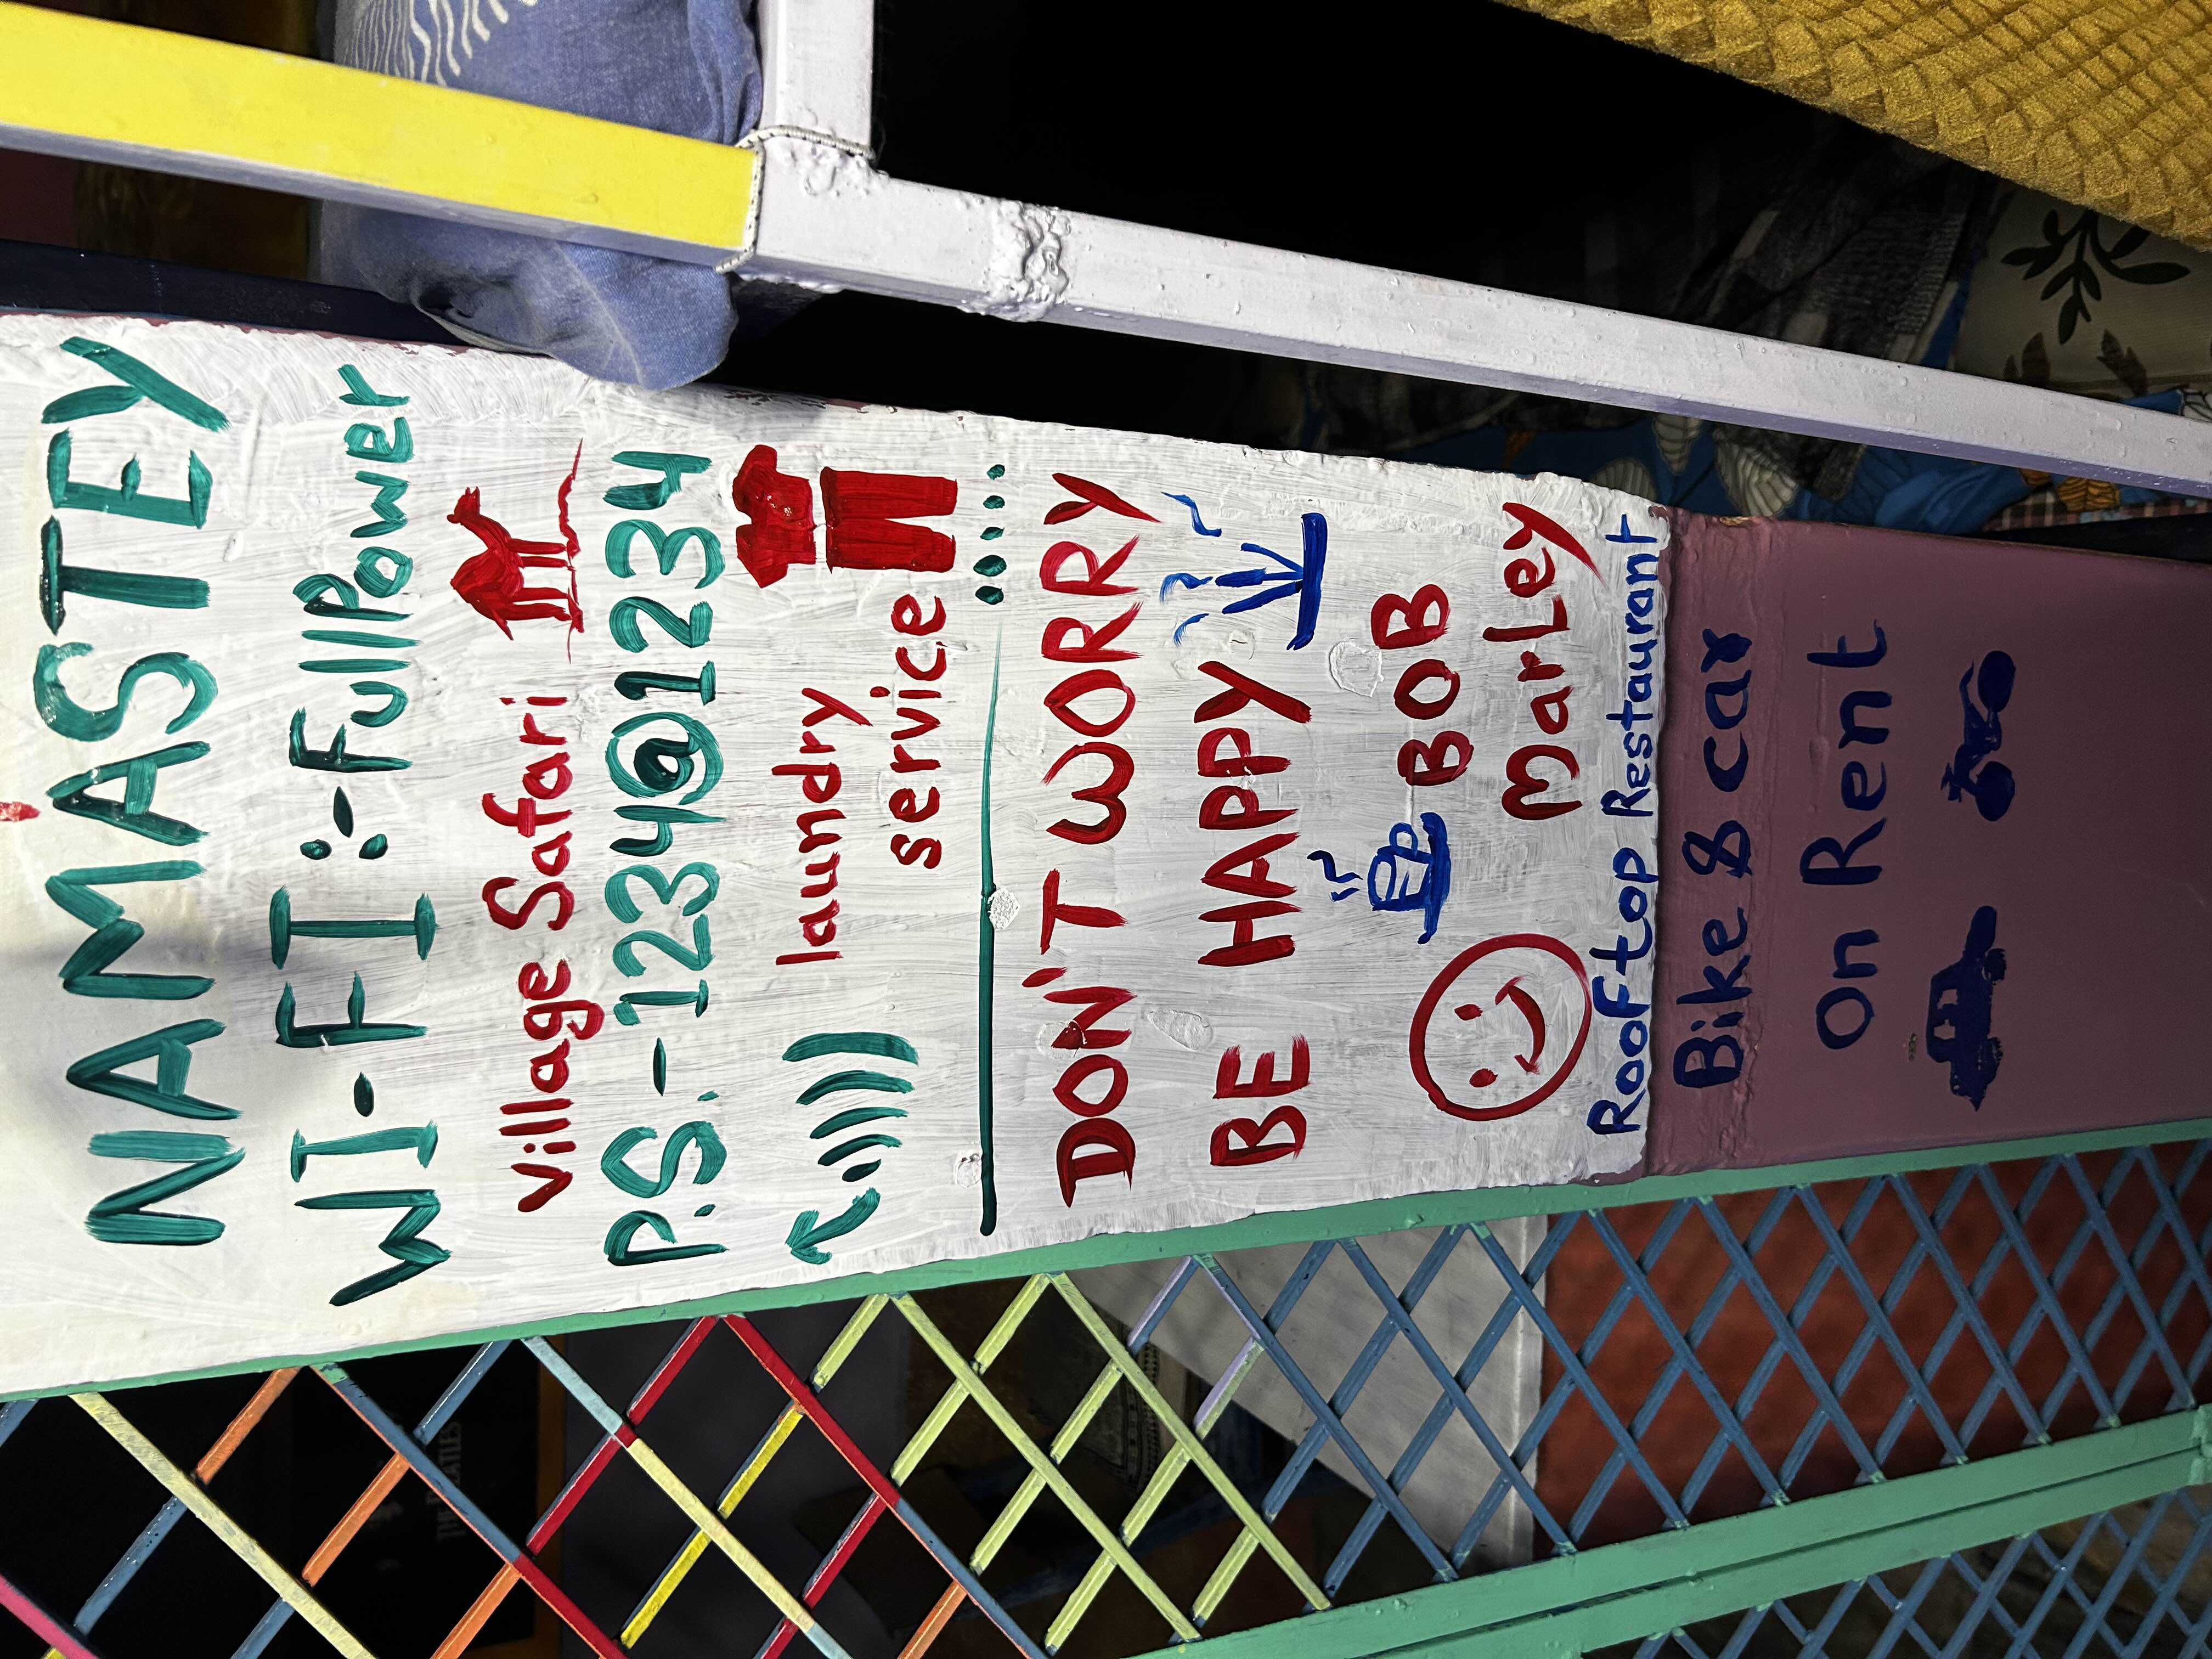 NAMASTEY
WI-FI :-FullPower
Village Safari
P.S.-1234@1234
laundry
service
DON'T WORRY
BE HAPPY
BOB
Marley
Rooftop Restaurant
Bike & car
on Rent
THE BEATLES